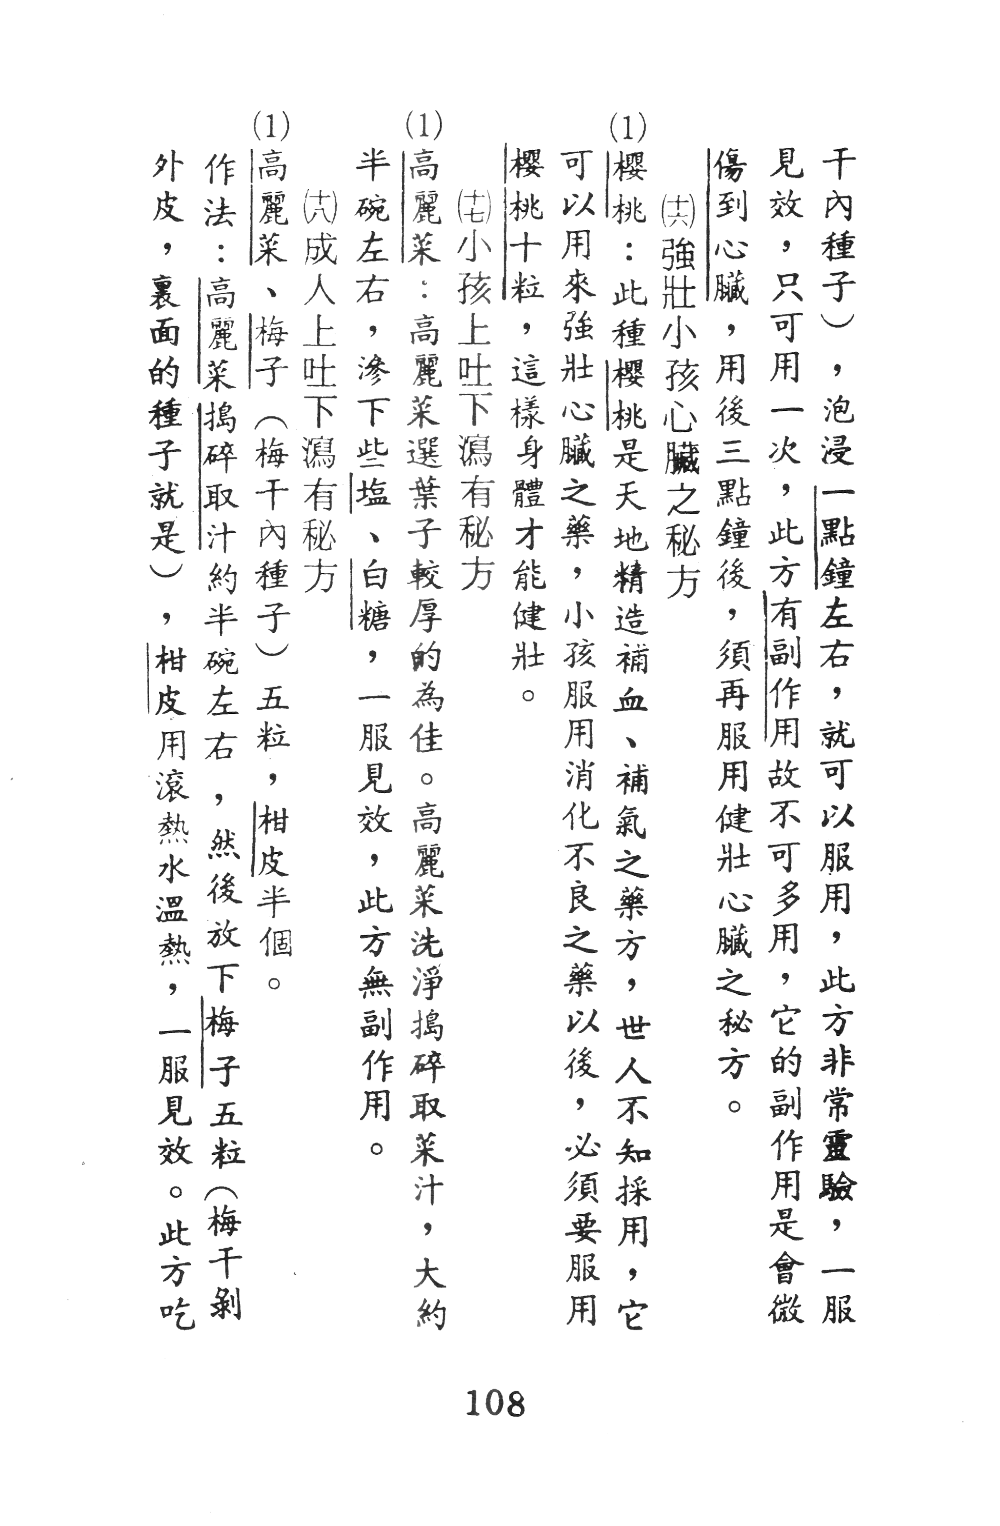 干內種子），泡浸一點鐘左右，就可以服用，此方非常靈驗，一服
見效，只可用一次，此方有副作用故不可多用，它的副作用是會微
傷到心臟，用後三點鐘後，須再服用健壯心臟之秘方。
㈩六強壯小孩心臟之秘方
(1)櫻桃：此種櫻桃是天地精造補血、補氣之藥方，世人不知採用，它
可以用來強壯心臟之藥，小孩服用消化不良之藥以後，必須要服用
櫻桃十粒，這樣身體才能健壯。
㈩七小孩上吐下瀉有秘方
(1)高麗菜：高麗菜選葉子較厚的為佳。高麗菜洗淨搗碎取菜汁，大約
半碗左右，滲下些塩、白糖，一服見效，此方無副作用。
㈩八成人上吐下瀉有秘方
(1)高麗菜、梅子（梅干內種子）五粒，柑皮半個。
作法：高麗菜搗碎取汁約半碗左右，然後放下梅子五粒（梅干剝
外皮，裏面的種子就是），柑皮用滾熱水溫熱，一服見效。此方吃
108